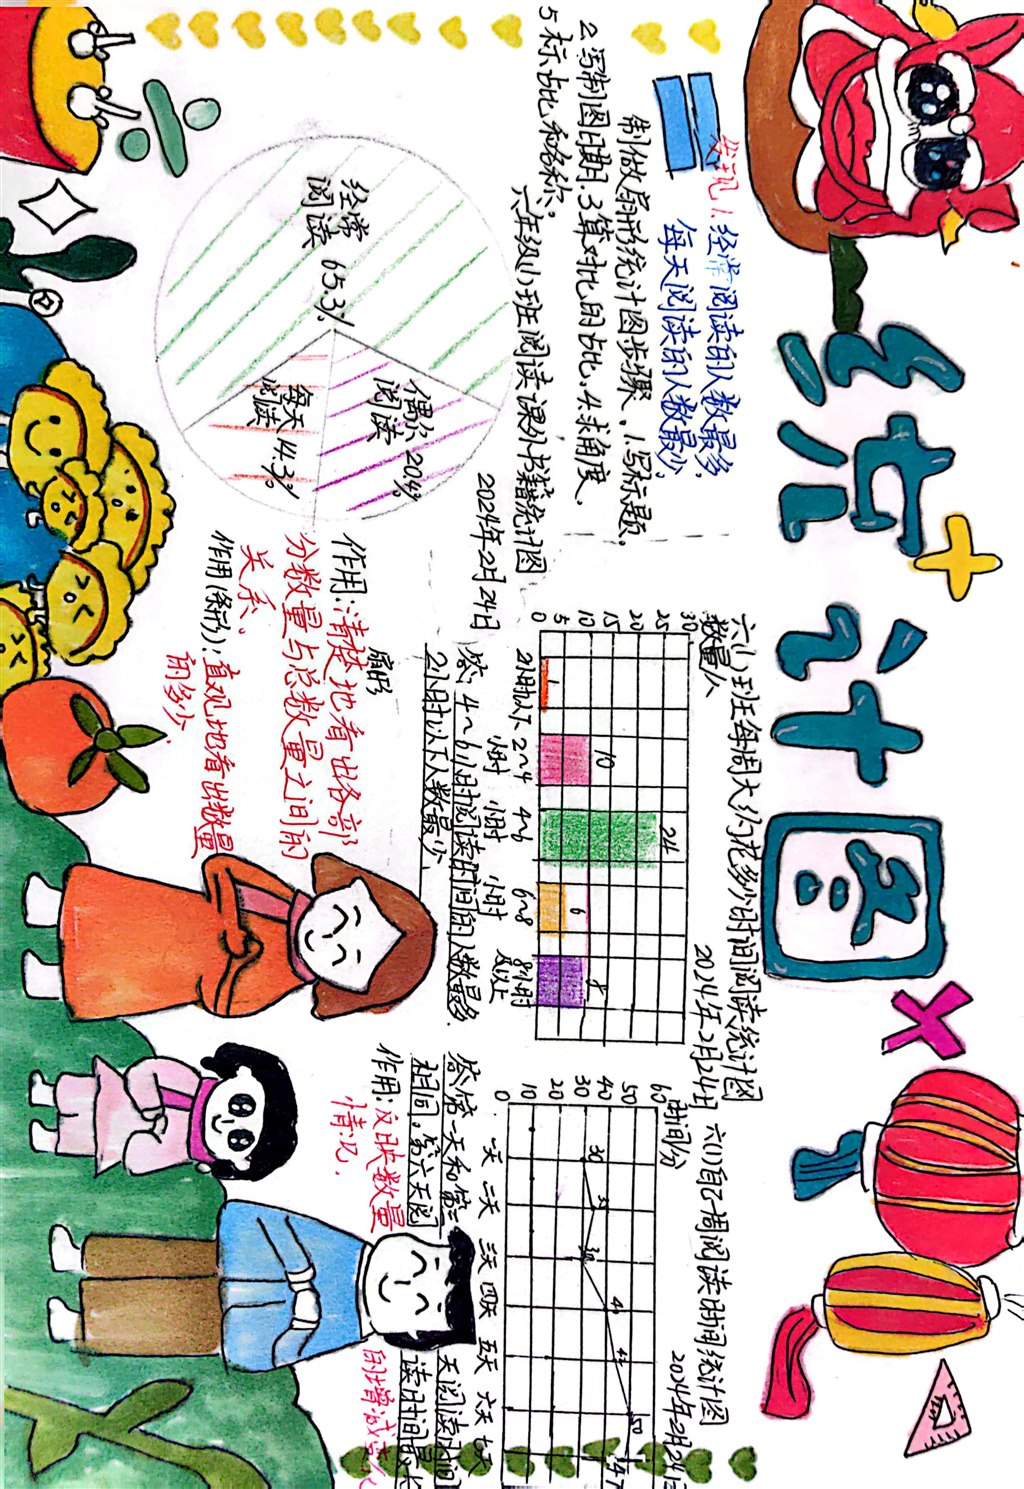 统计图
发现1.经常阅读的人数最多,
每天阅读的人数最少,
制做扇形统计图步骤,1.写标题。
2.写制图日期.3算对比的占比,4.求角度.
5标占比和名称。
六年级(1)班阅读课外书籍统计图
2024年2月24日
经常
阅读
65.3%
偶尔
阅读
20.4%
每天
阅读
14.3%
扇形
作用:清楚地看出各部
分数量与总数量之间的
关系。
作用(条形):直观地看出数量
的多少.
六(1)班每周大约花多少时间阅读统计图
2024年2月24日
数量/人
30
25
20
15
10
5
0
1
10
24
6
8
2小时以下
2~4
小时
4~6
小时
6~8
小时
8小时
及以上
答:4~6小时阅读时间的人数最多.
2小时以下人数最少.
六(1)自己周阅读时间统计图
2024年2月24日
时间/分
60
50
40
30
20
10
0
30
35
30
40
43
50
47
一天 二天 三天 四天 五天 六天 七天
答:第一天和第三天阅读时间
相同。第六天阅读时间最长
作用:反映数量的增减变化
情况.